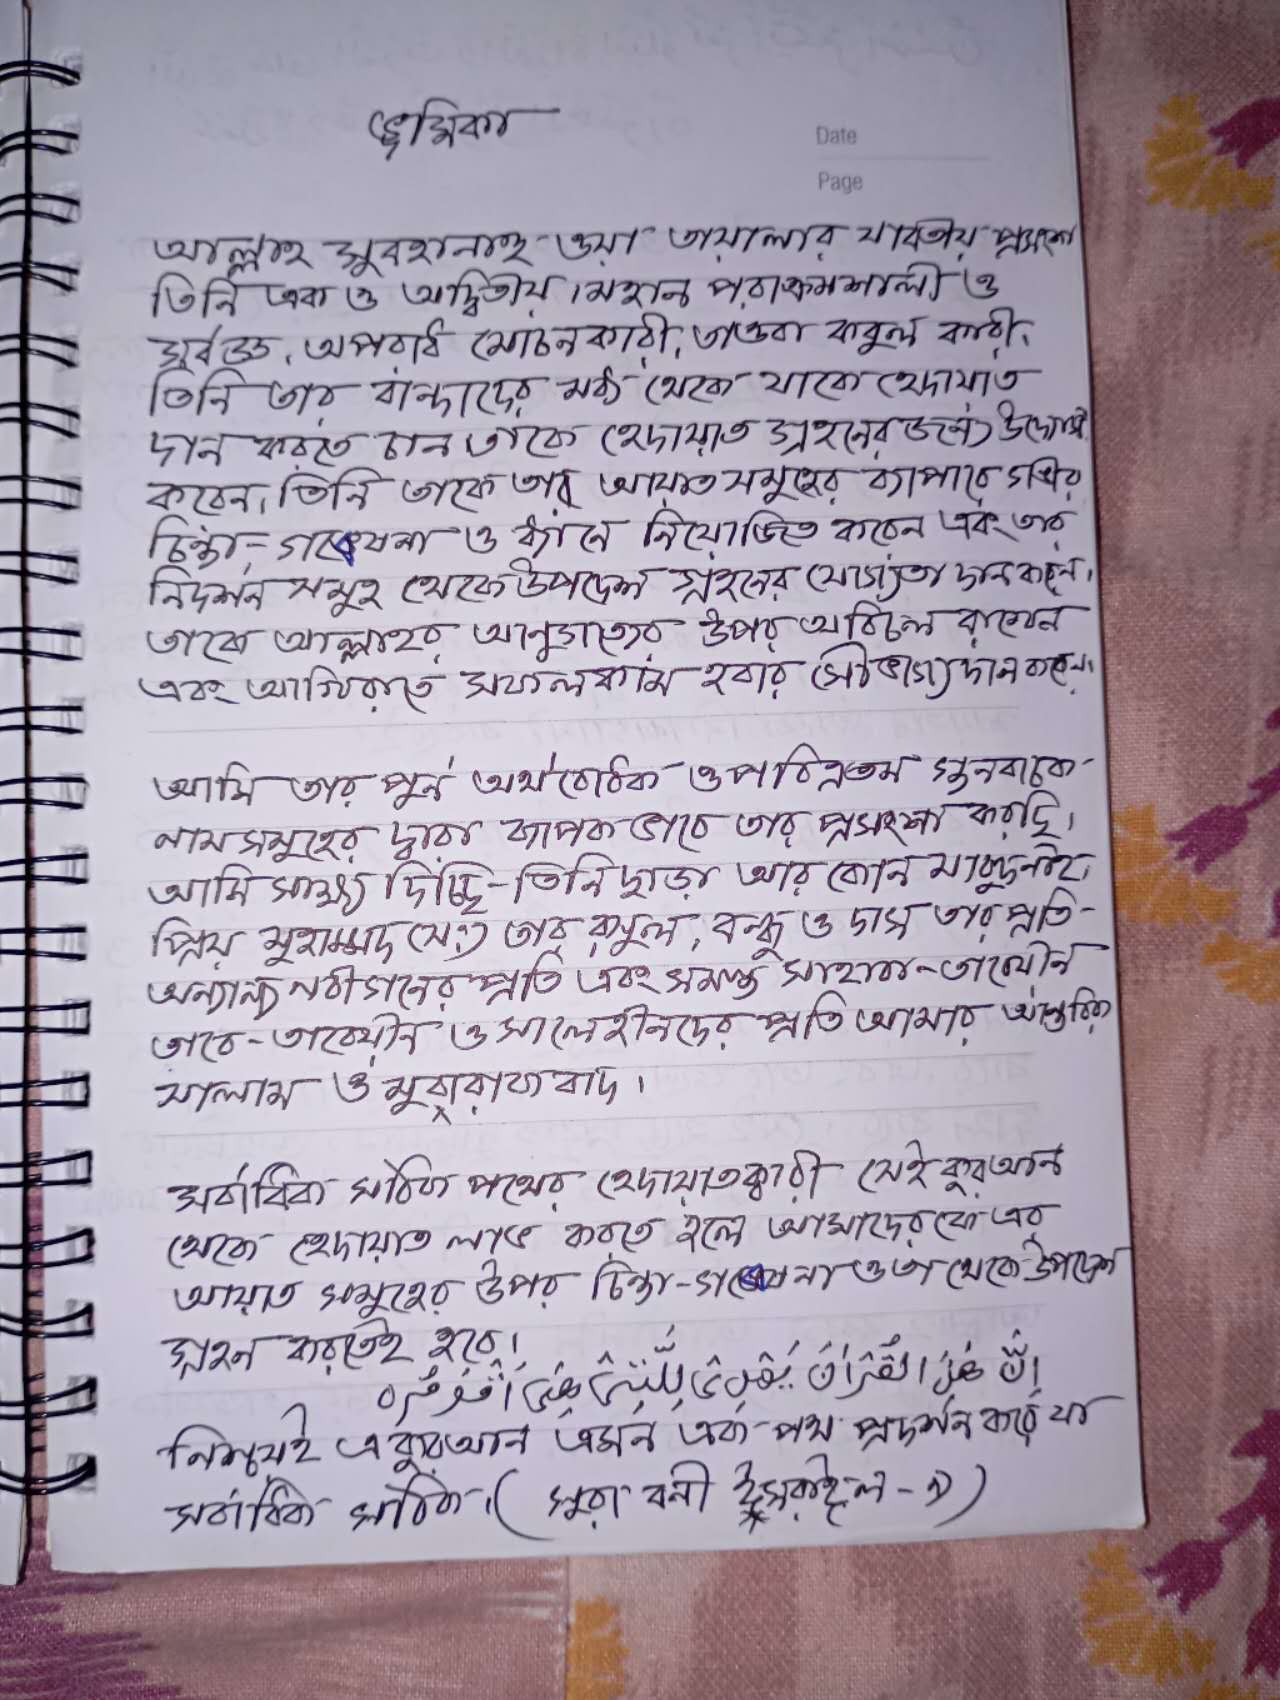 ভূমিকা
Date
Page
আল্লাহ সুবহানাহু ওয়া তায়ালার যাবতীয় প্রসংশা
তিনি এক ও অদ্বিতীয়। মহান পরাক্রমশালী ও
সর্বজ্ঞ, অপরাধ মোচনকারী, তাওবা কবুল কারী।
তিনি তার বান্দাদের মধ্য থেকে যাকে হেদায়াত
দান করতে চান তাকে হেদায়াত গ্রহনের জন্যে
করেন। তিনি তাকে তার আয়াত সমুহের ব্যাপারে গভীর
চিন্তা-গবেষনা ও ধ্যানে নিয়োজিত করেন এবং তার
নিদর্শন সমুহ থেকে উপদেশ গ্রহনের যোগ্যতা দান করেন।
তাকে আল্লাহর আনুগত্যের উপর অবিচল রাখেন
এবং আখিরাতে সফলকাম হবার সৌভাগ্য দান করেন।
আমি তার পুর্ন অর্থবোধক ও পবিত্রতম গুনবাচক
নামসমুহের দ্বারা ব্যাপক ভাবে তার প্রসংশা করছি।
আমি সাক্ষ্য দিচ্ছি-তিনি ছাড়া আর কোন মাবুদ নাই।
প্রিয় মুহাম্মদ (সঃ) তার রাসুল, বন্ধু ও দাস তার প্রতি-
অন্যান্য নবীগনের প্রতি এবং সমস্ত সাহাবা-তাবেয়ীন
তাবে-তাবেয়ীন ও সালেহীনদের প্রতি আমার আন্তরিক
সালাম ও মুবারাকবাদ।
সর্বাধিক সঠিক পথের হেদায়াতকারী সেই কুরআন
থেকে হেদায়াত লাভ করতে হলে আমাদেরকে এর
আয়াত সমুহের উপর চিন্তা-গবেষনা ও তা থেকে উপদেশ
গ্রহন করতেই হবে।
নিশ্চয়ই এ কুরআন এমন এক পথ প্রদর্শন করে যা
সর্বাধিক সঠিক। (সুরা বনী ইসরাইল-৯)